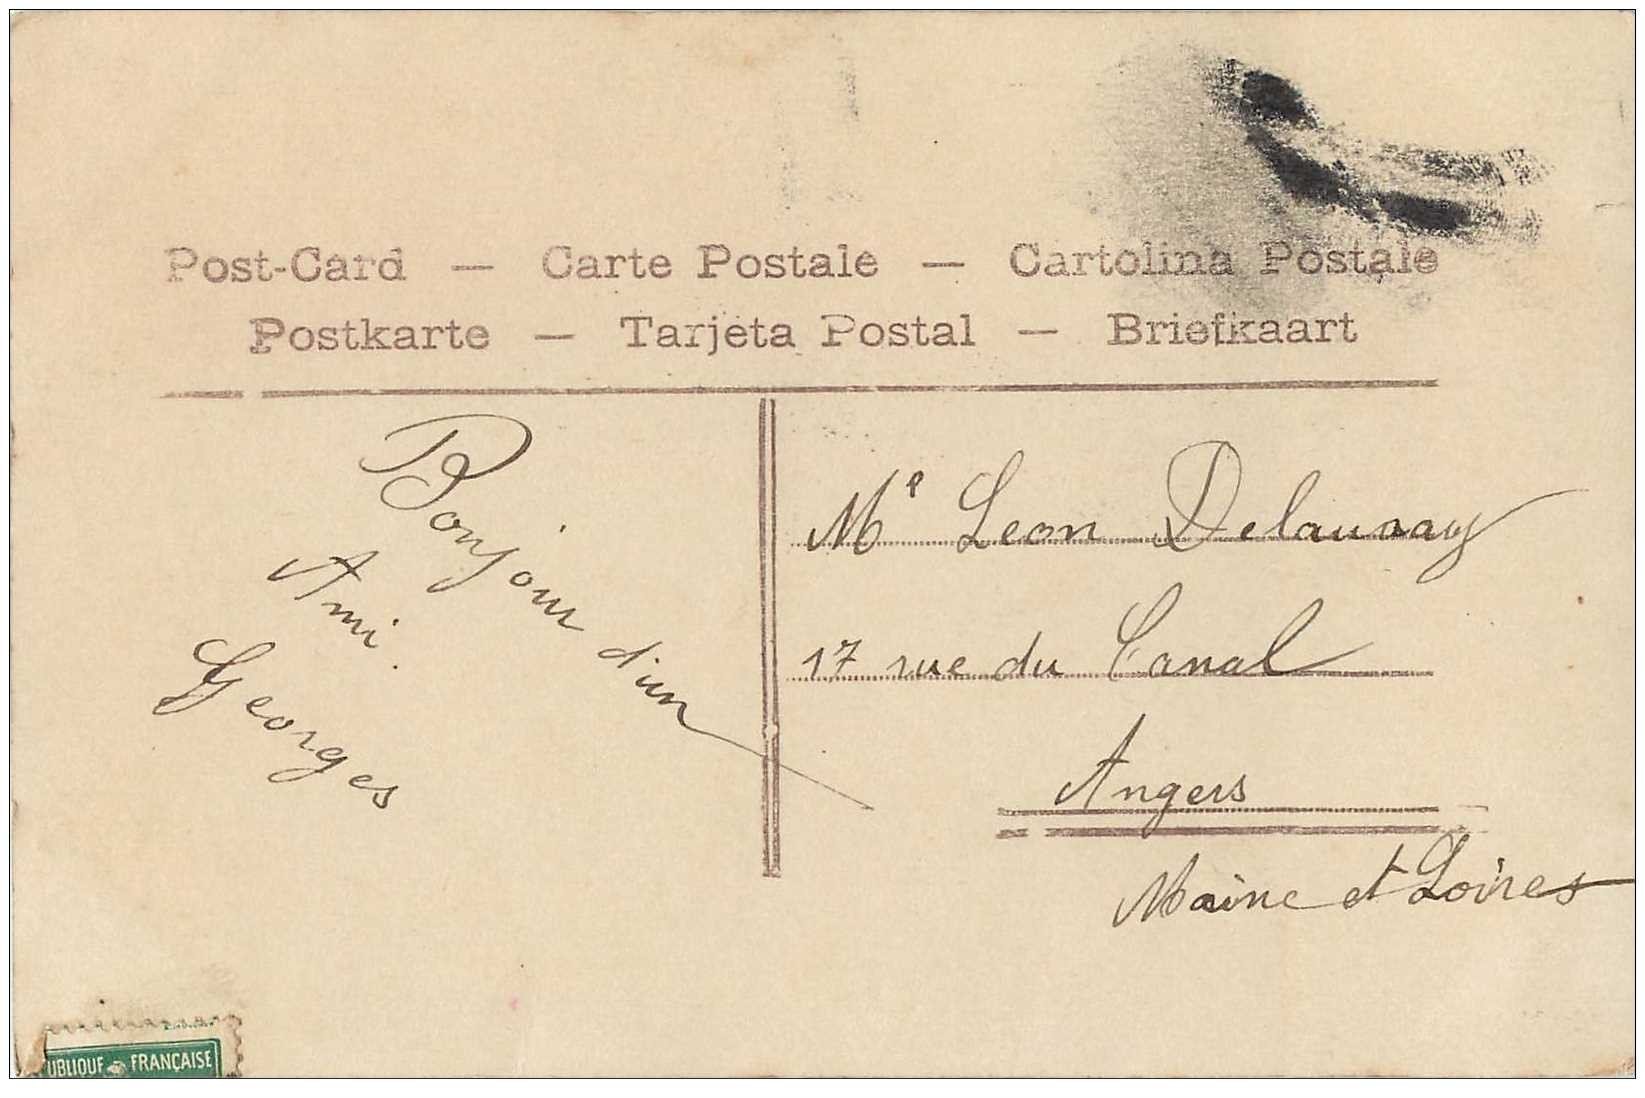 Post-Card — Carte Postale — Cartolina Postale
Postkarte — Tarjeta Postal — Briefkaart
Bonjour d'un
Ami.
Georges
Mr Leon Delaunay
17 rue du Canal
Angers
Maine et Loires
UBLIQUE FRANÇAISE